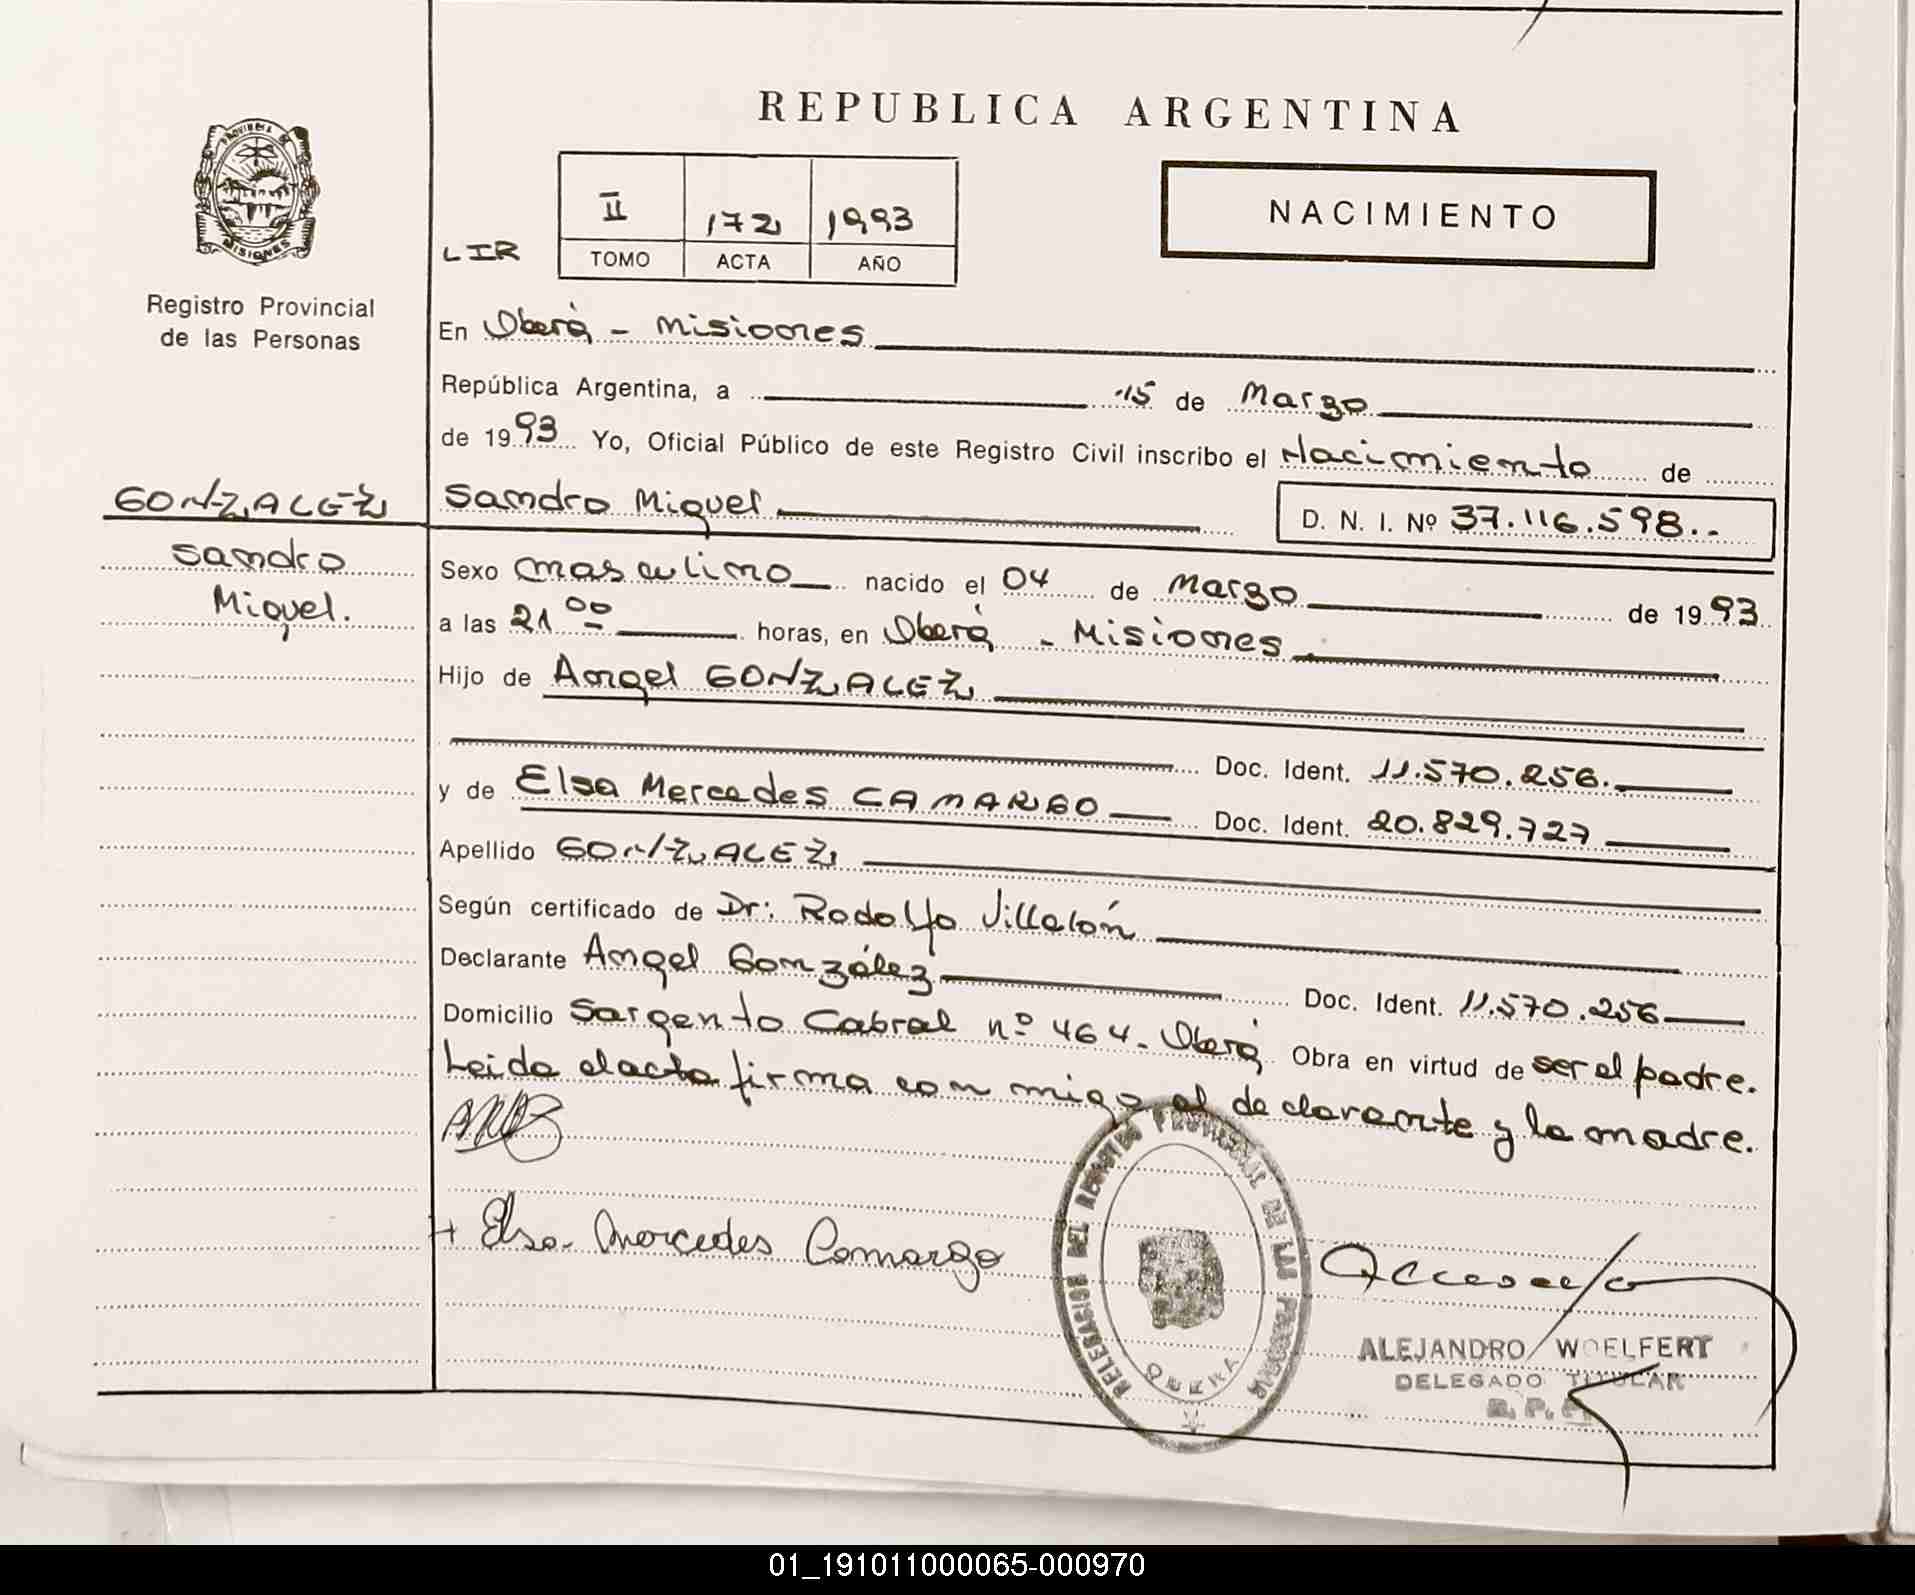 REPUBLICA ARGENTINA
PROVINCIA DE
MISIONES
Registro Provincial
de las Personas
LIR
II 172 1993
TOMO ACTA AÑO
NACIMIENTO
En Oberá - Misiones
República Argentina, a 15 de Marzo
de 1993 Yo, Oficial Público de este Registro Civil inscribo el Nacimiento de
GONZALEZ Sandro Miguel D. N. I. Nº 37.116.598..
Sandro
Miguel.
Sexo masculino nacido el 04 de Marzo de 1993
a las 21 00 horas, en Oberá - Misiones
Hijo de Angel GONZALEZ
Doc. Ident. 11.570.256.
y de Elsa Mercedes CAMARGO Doc. Ident. 20.829.727
Apellido GONZALEZ
Según certificado de Dr: Rodolfo Villalón
Declarante Angel González Doc. Ident. 11.570.256
Domicilio Sargento Cabral nº 464. Oberá Obra en virtud de ser el padre.
Leida el acta firma con migo el declarante y la madre.
+ Elsa Mercedes Camargo
DELEGACION DEL REGISTRO PROVINCIAL DE LAS PERSONAS
OBERA
ALEJANDRO WOELFERT
DELEGADO TITULAR
R. P. P.
01_191011000065-000970